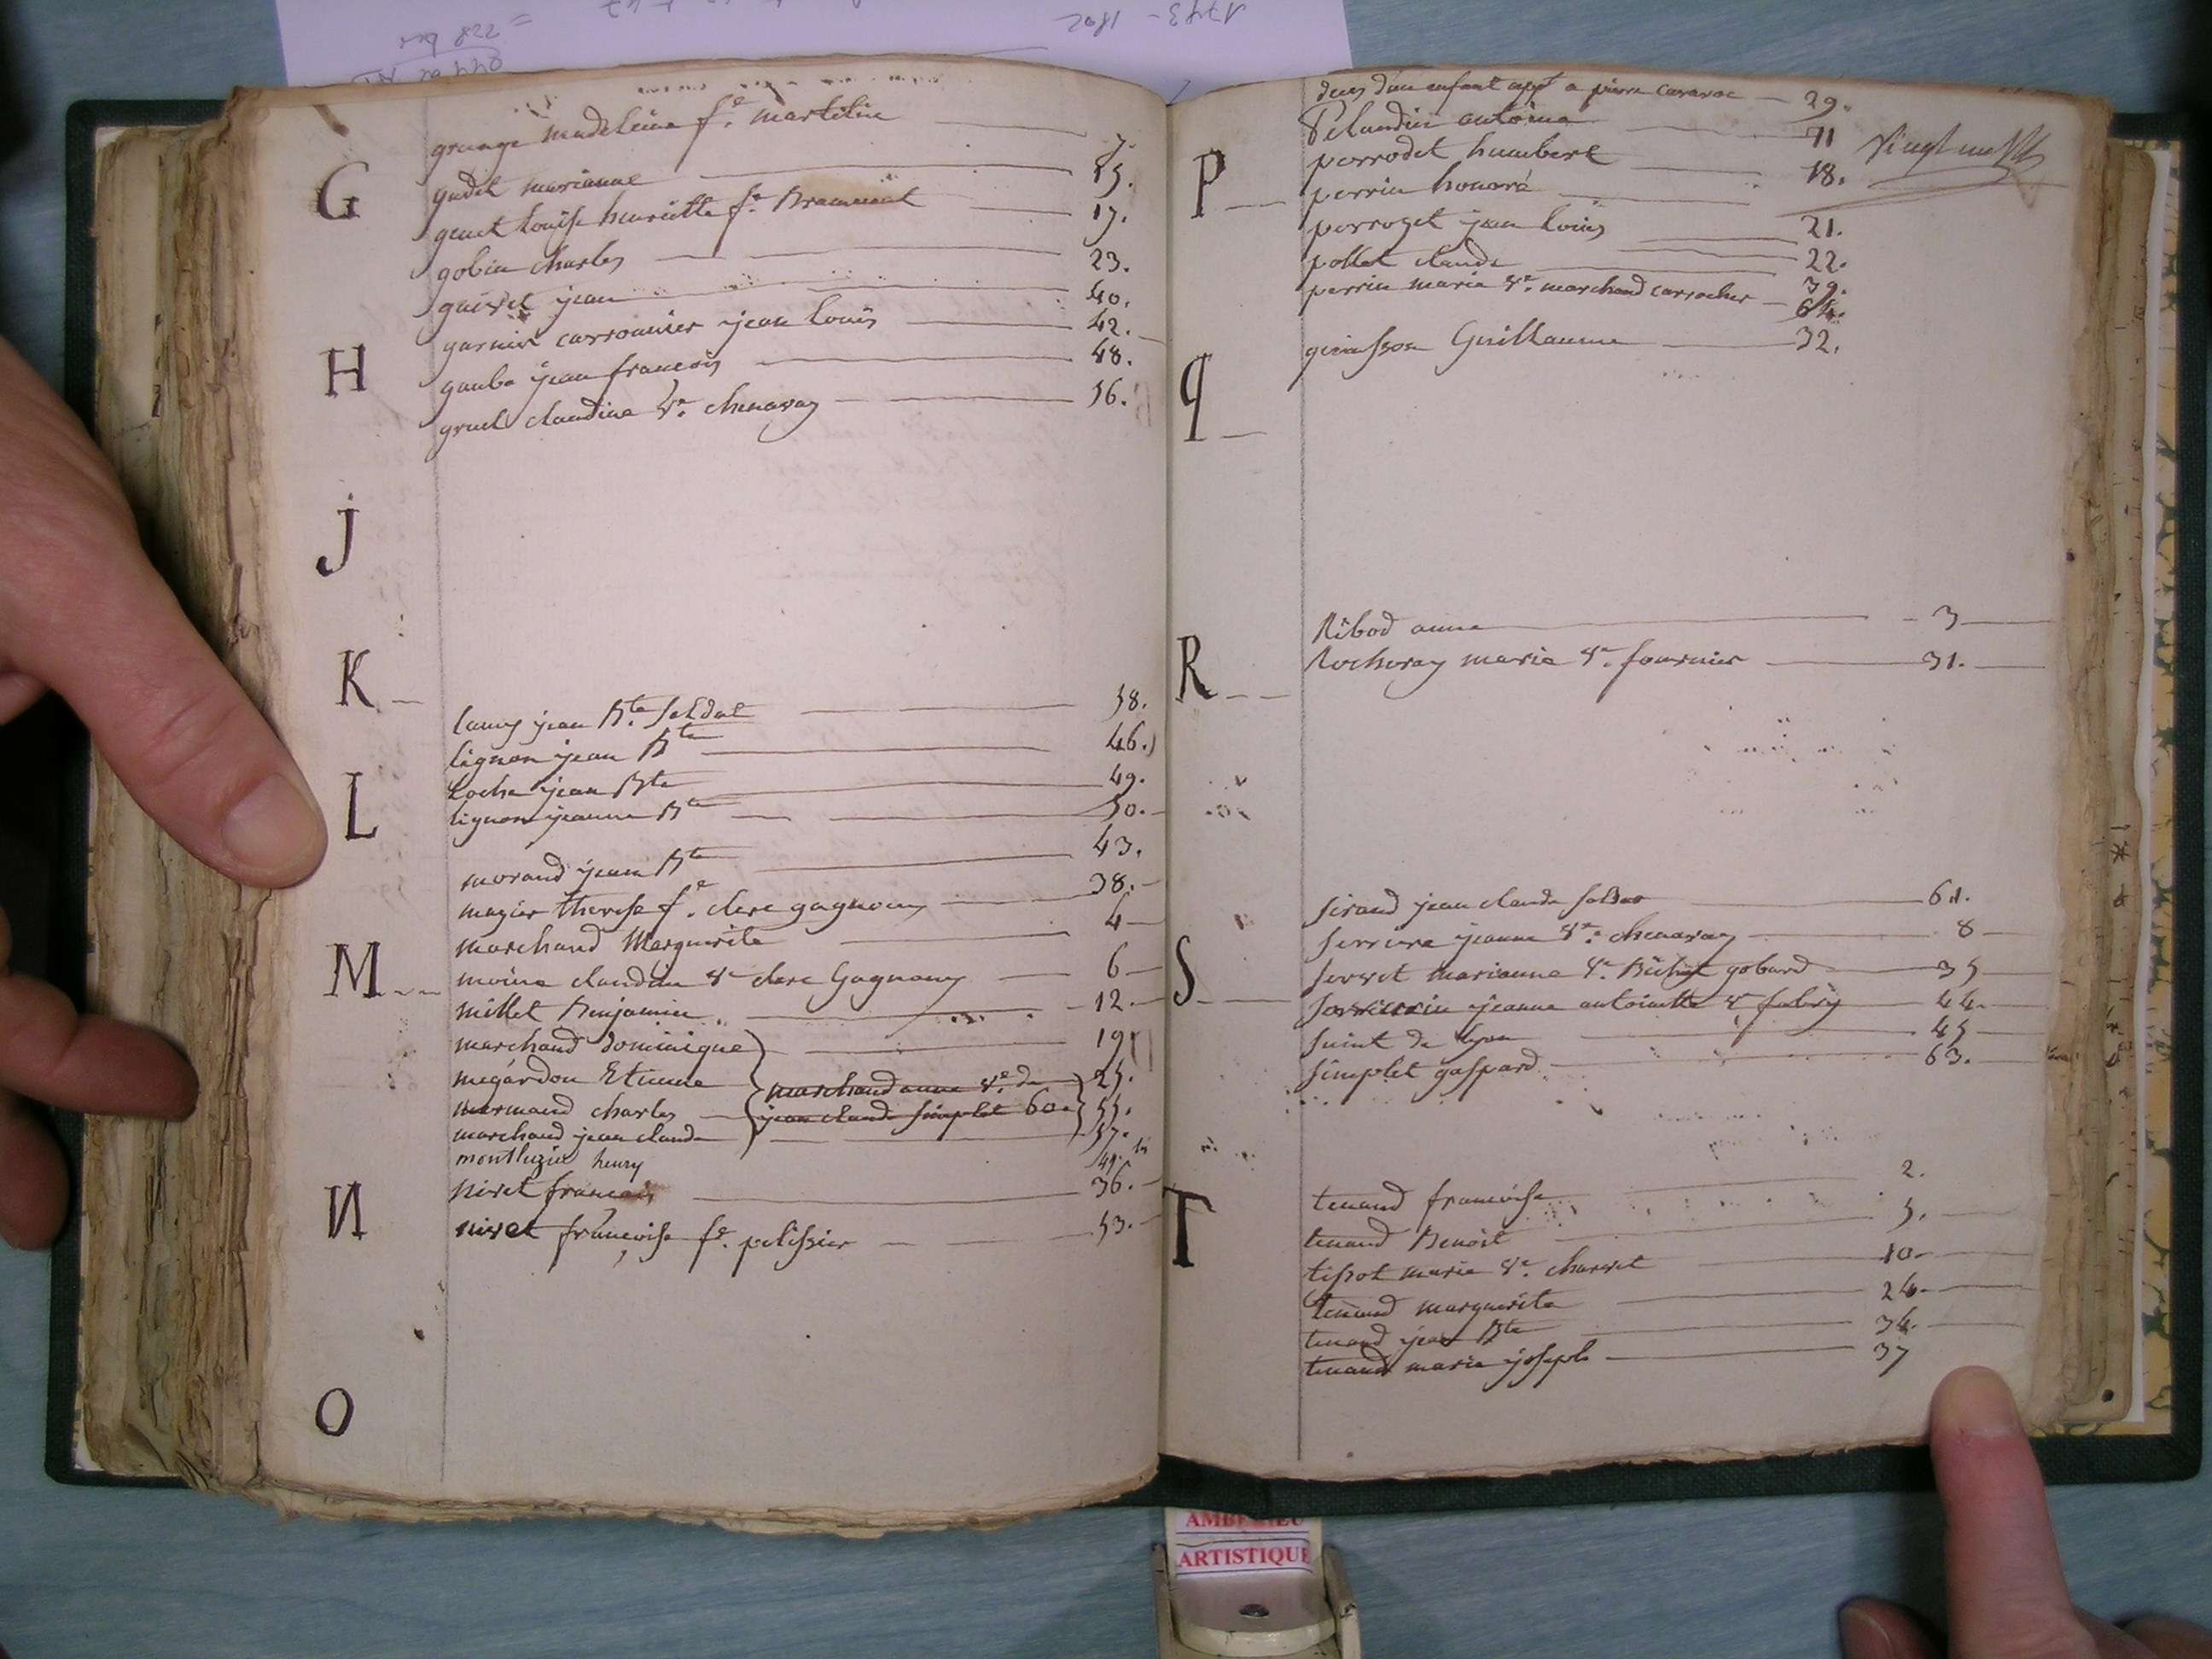 1793 - 1802
= 228 
G
grange madeleine f.e martelin 7.
gudet marianne 15.
genet Louise henriette f.e 17.
gobin charles 23.
guivet jean 40.
garnier carronnier jean Louis 42.
gaube jean francois 48.
gruel claudine v.e chenavay 56.
H
J
K
L
lamy jean B.te Soldat 58.
lignon jean Bte 46.
Loche jean Bte 49.
lignon jeanne Bte 50.
M
morand jean Bte 43.
magier therese f.e clerc gagnoux 38.
marchand Marguerite 4
moine claudine v.e clerc Gagnoux 6
millet Benjamin 12
marchand dominique 19
megárdon Etienne 25.
marchand anne v.e de
mermand charles 55.
jean claude simplet 60.
marchand jean claude 57.
montluzin henry 49. bis
N
nivet francois 36.
nivet francoise f.e pelissier 53.
O
P
deces d'un enfant app.t a pierre 29.
Pelandin antoine 11
perrodet humbert 18.
vingt
perrin honoré
perroget jean Louis 21.
pollet claude 22.
perrin marie v.e marchand carrocher 39.
64.
q
Guillaume 32.
R
Ribod anne 3
Rocheray marie v.e fournier 31.
S
sirand jean claude 61.
serriere jeanne v.e chenavay 8
servet marianne v.e gobard 35
jeanne antoinette v.e fabry 44.
suint de Lyon 45
simplet gaspard 63.
T
tenand francoise 2.
tenand Benoit 5.
tissot marie v.e charvet 10
tenand marguerite 24
tenand jean Bte 34.
tenand marie joseph 37
AMBERIEU
ARTISTIQUE